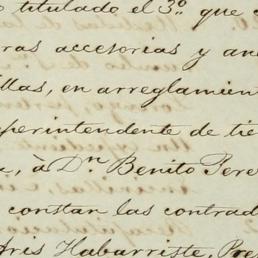 titulado el 3º. que
ras accesorias y an
llas, en arreglamien
perintendente de tie
, à Dn. Benito Pere
constan las contrad
Habarriste, Pre